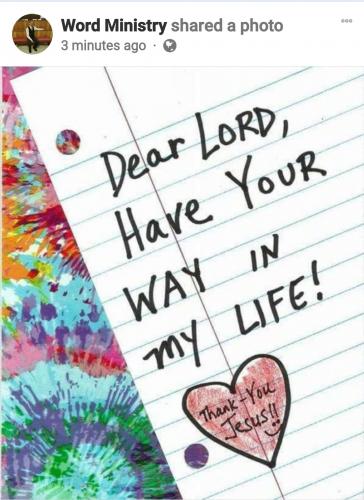 Word Ministry shared a photo
3 minutes ago ·
Dear LORD,
Have YOUR
WAY IN
MY LIFE!
Thank-You
Jesus!!